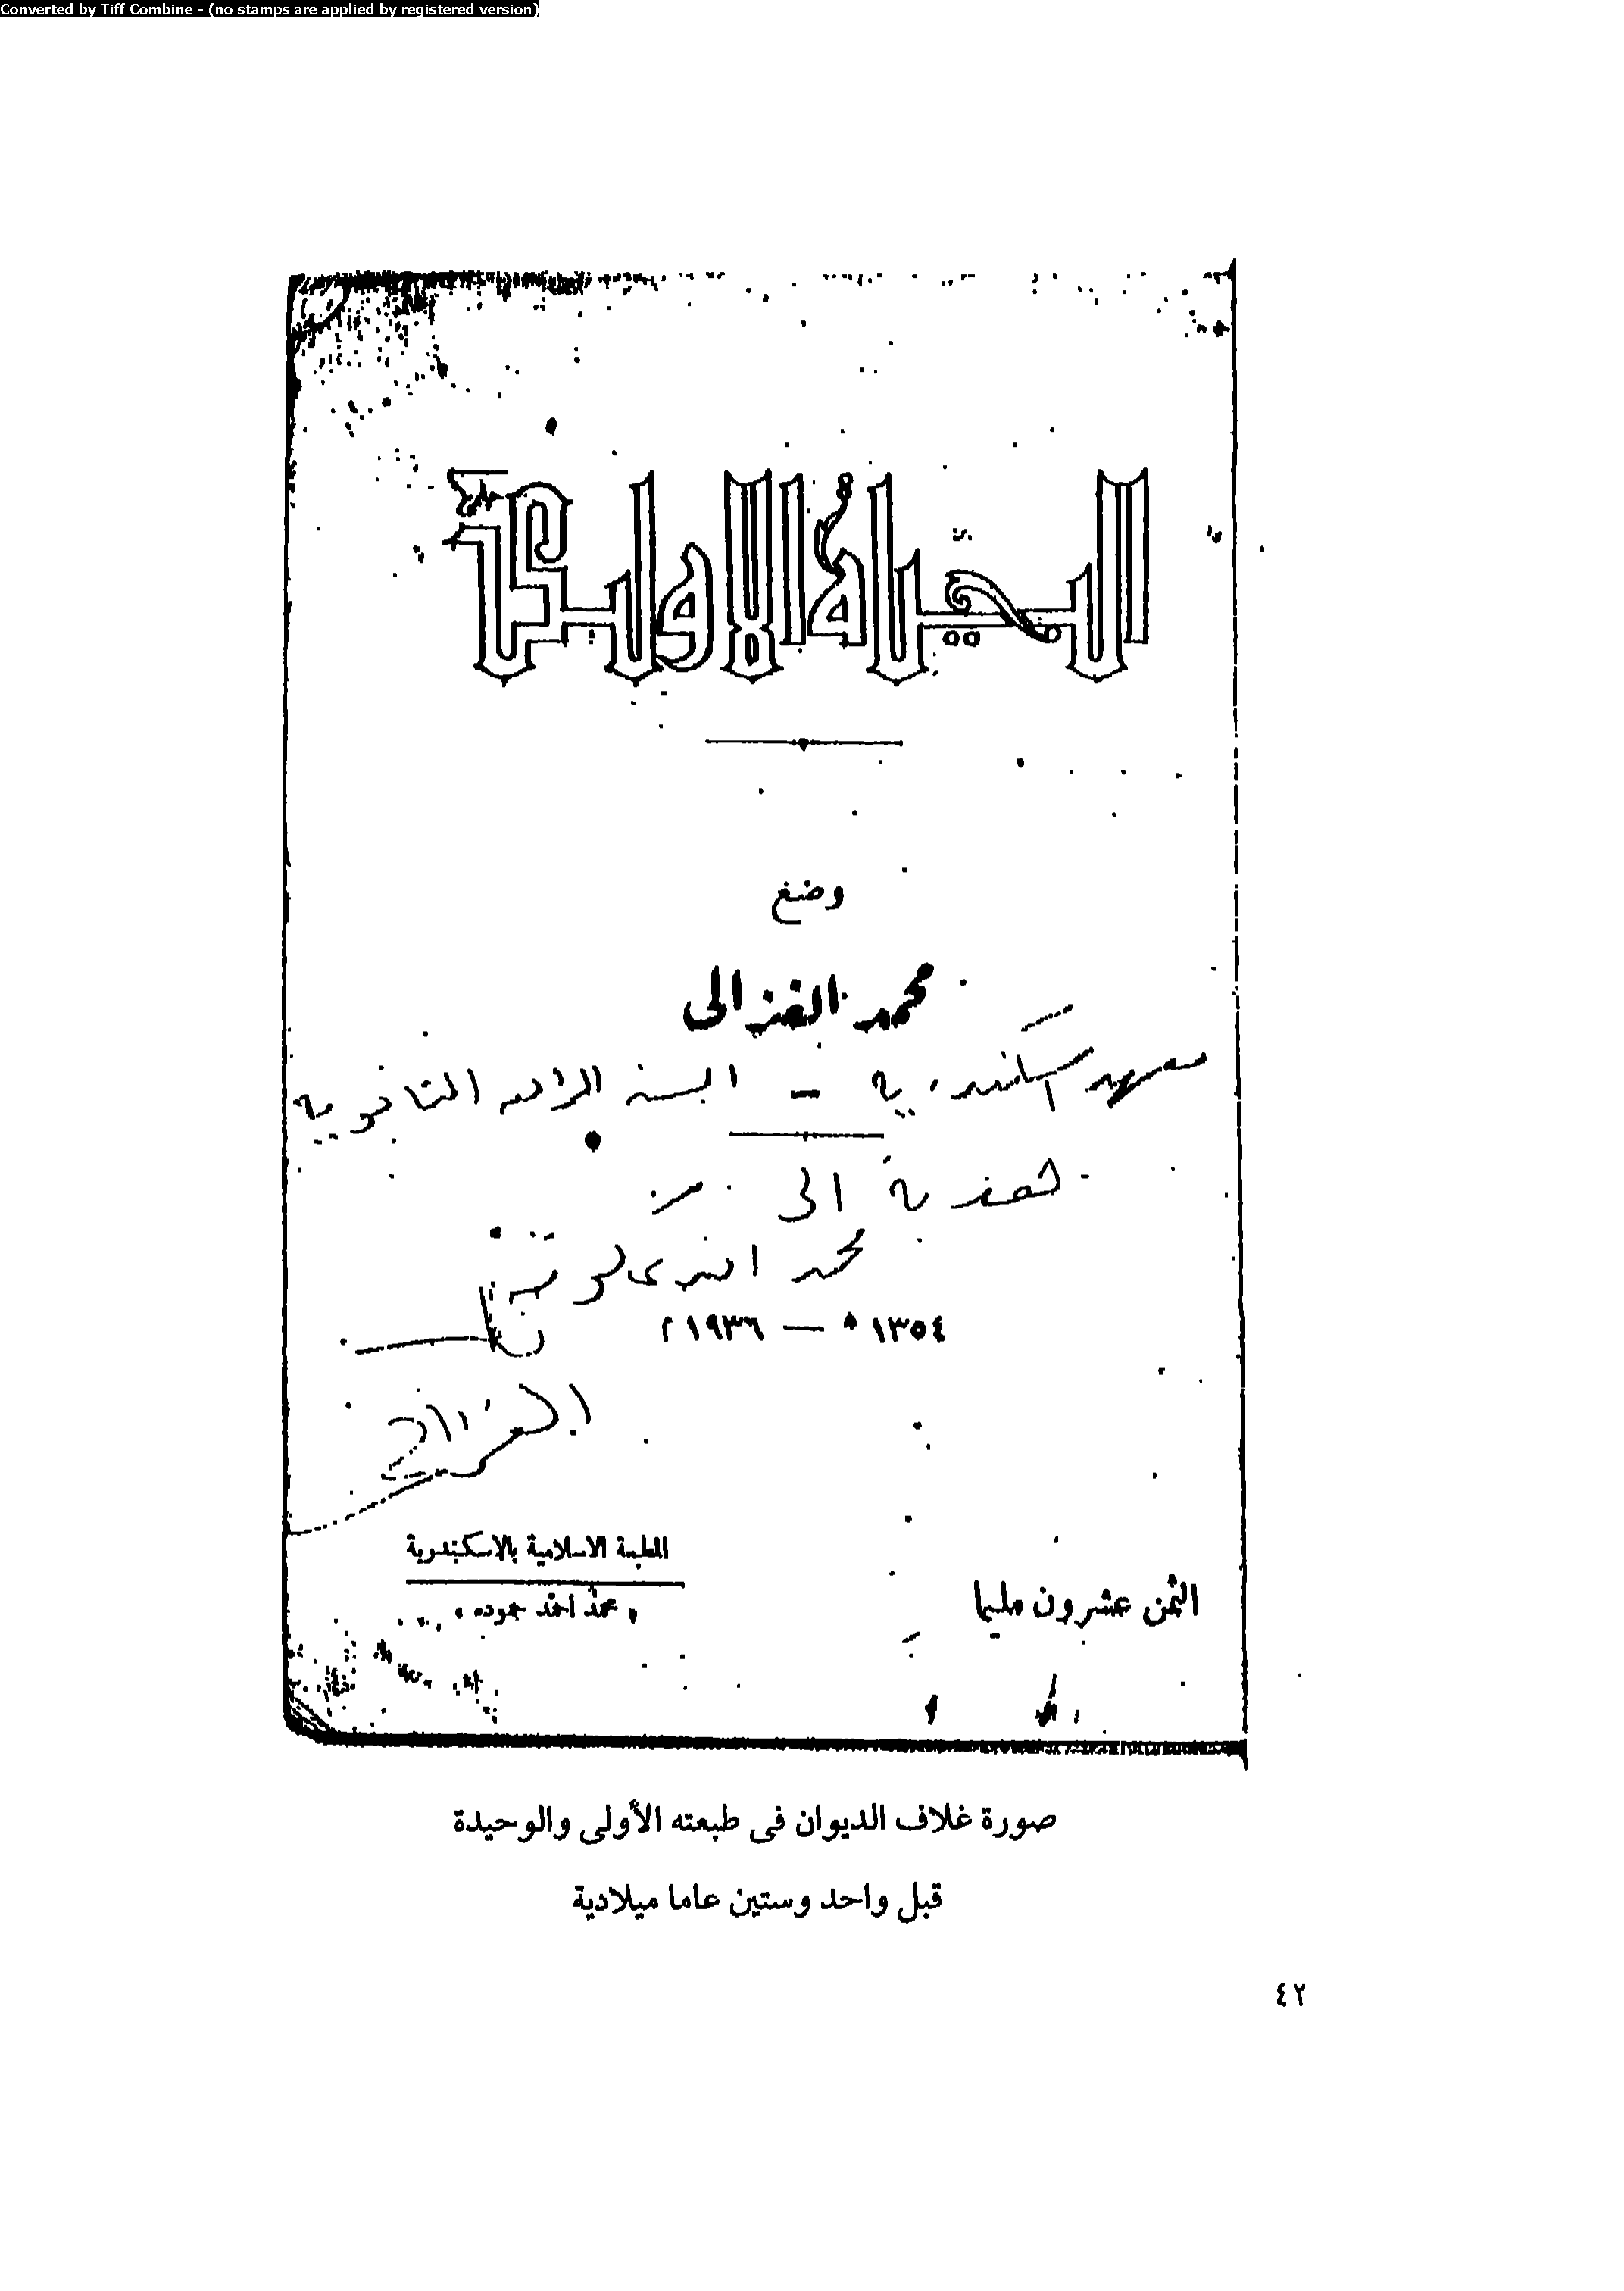 Converted by Tiff Combine - (no stamps are applied by registered version)
الحياة الأولى
وضع
محمد الغزالى
معهد اسكندرية — السنة الرابعه الثانوية
الى
محمد
١٣٥٤ ه — ١٩٣٦ م
الغزالى
المطبعة الاسلامية بالاسكندرية
محمد احمد حموده
الثمن عشرون مليما
صورة غلاف الديوان فى طبعته الأولى والوحيدة
قبل واحد وستين عاما ميلادية
٤٢